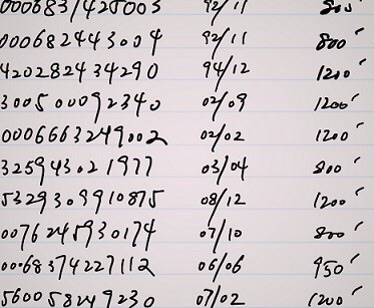 0006837425003 92/11 800
000682443004 92/11 800
420282434290 94/12 1200
300500092340 02/09 1200
0006663249002 02/02 1200
325943021977 03/04 800
5329309910875 08/12 1200
0076245930174 07/10 800
0068374227112 06/06 950
560058249230 07/02 1200